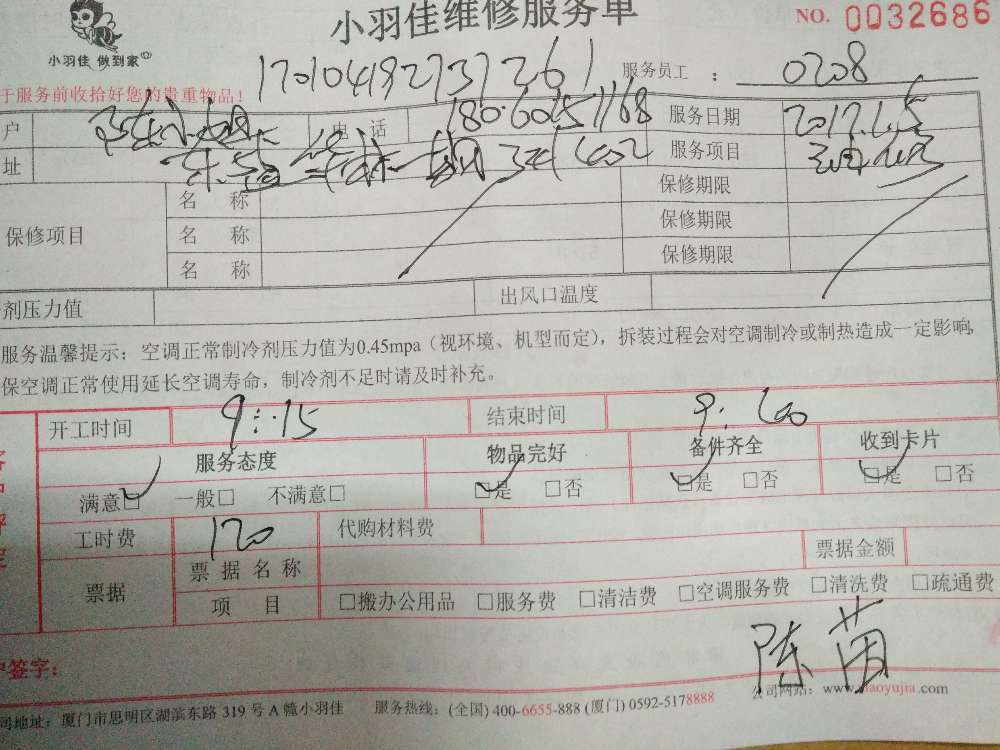 小羽佳维修服务单
NO. 0032686
小羽佳 做到家
服务员工 : 0208
于服务前收拾好您的贵重物品!
户 电 话 服务日期
址 服务项目
保修项目 名 称 保修期限
名 称 保修期限
名 称 保修期限
剂压力值 出风口温度
服务温馨提示:空调正常制冷剂压力值为0.45mpa(视环境、机型而定),拆装过程会对空调制冷或制热造成一定影响,
保空调正常使用延长空调寿命,制冷剂不足时请及时补充。
开工时间 9:15 结束时间
服务态度 物品完好 备件齐全 收到卡片
满意□ 一般□ 不满意□ □是 □否 □是 □否 □是 □否
工时费 120 代购材料费
票据 票据名称 票据金额
项 目 □搬办公用品 □服务费 □清洁费 □空调服务费 □清洗费 □疏通费
签字: 陈苗
公司网站: www.xiaoyujia.com
司地址: 厦门市思明区湖滨东路 319 号 A 幢小羽佳 服务热线: (全国) 400-6655-888 (厦门) 0592-5178888